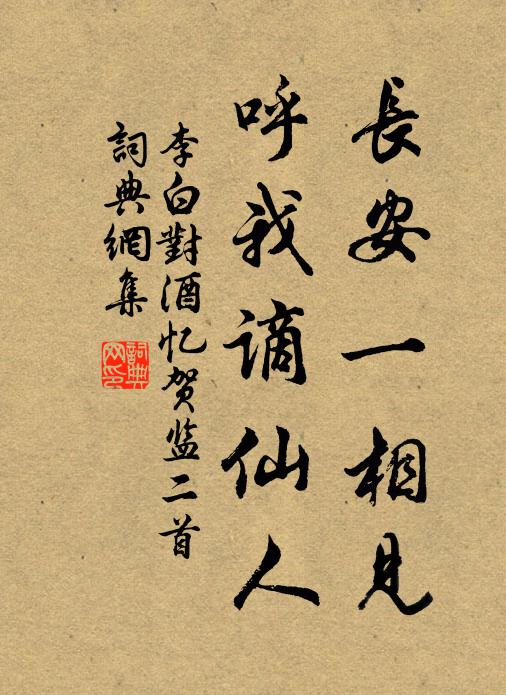 長安一相見
呼我謫仙人
李白對酒忆贺监二首
詞典網集
詞典网印